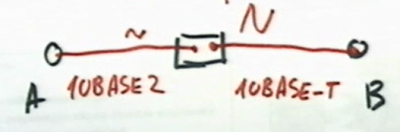 ~ N
10BASE2 10BASE-T
A B